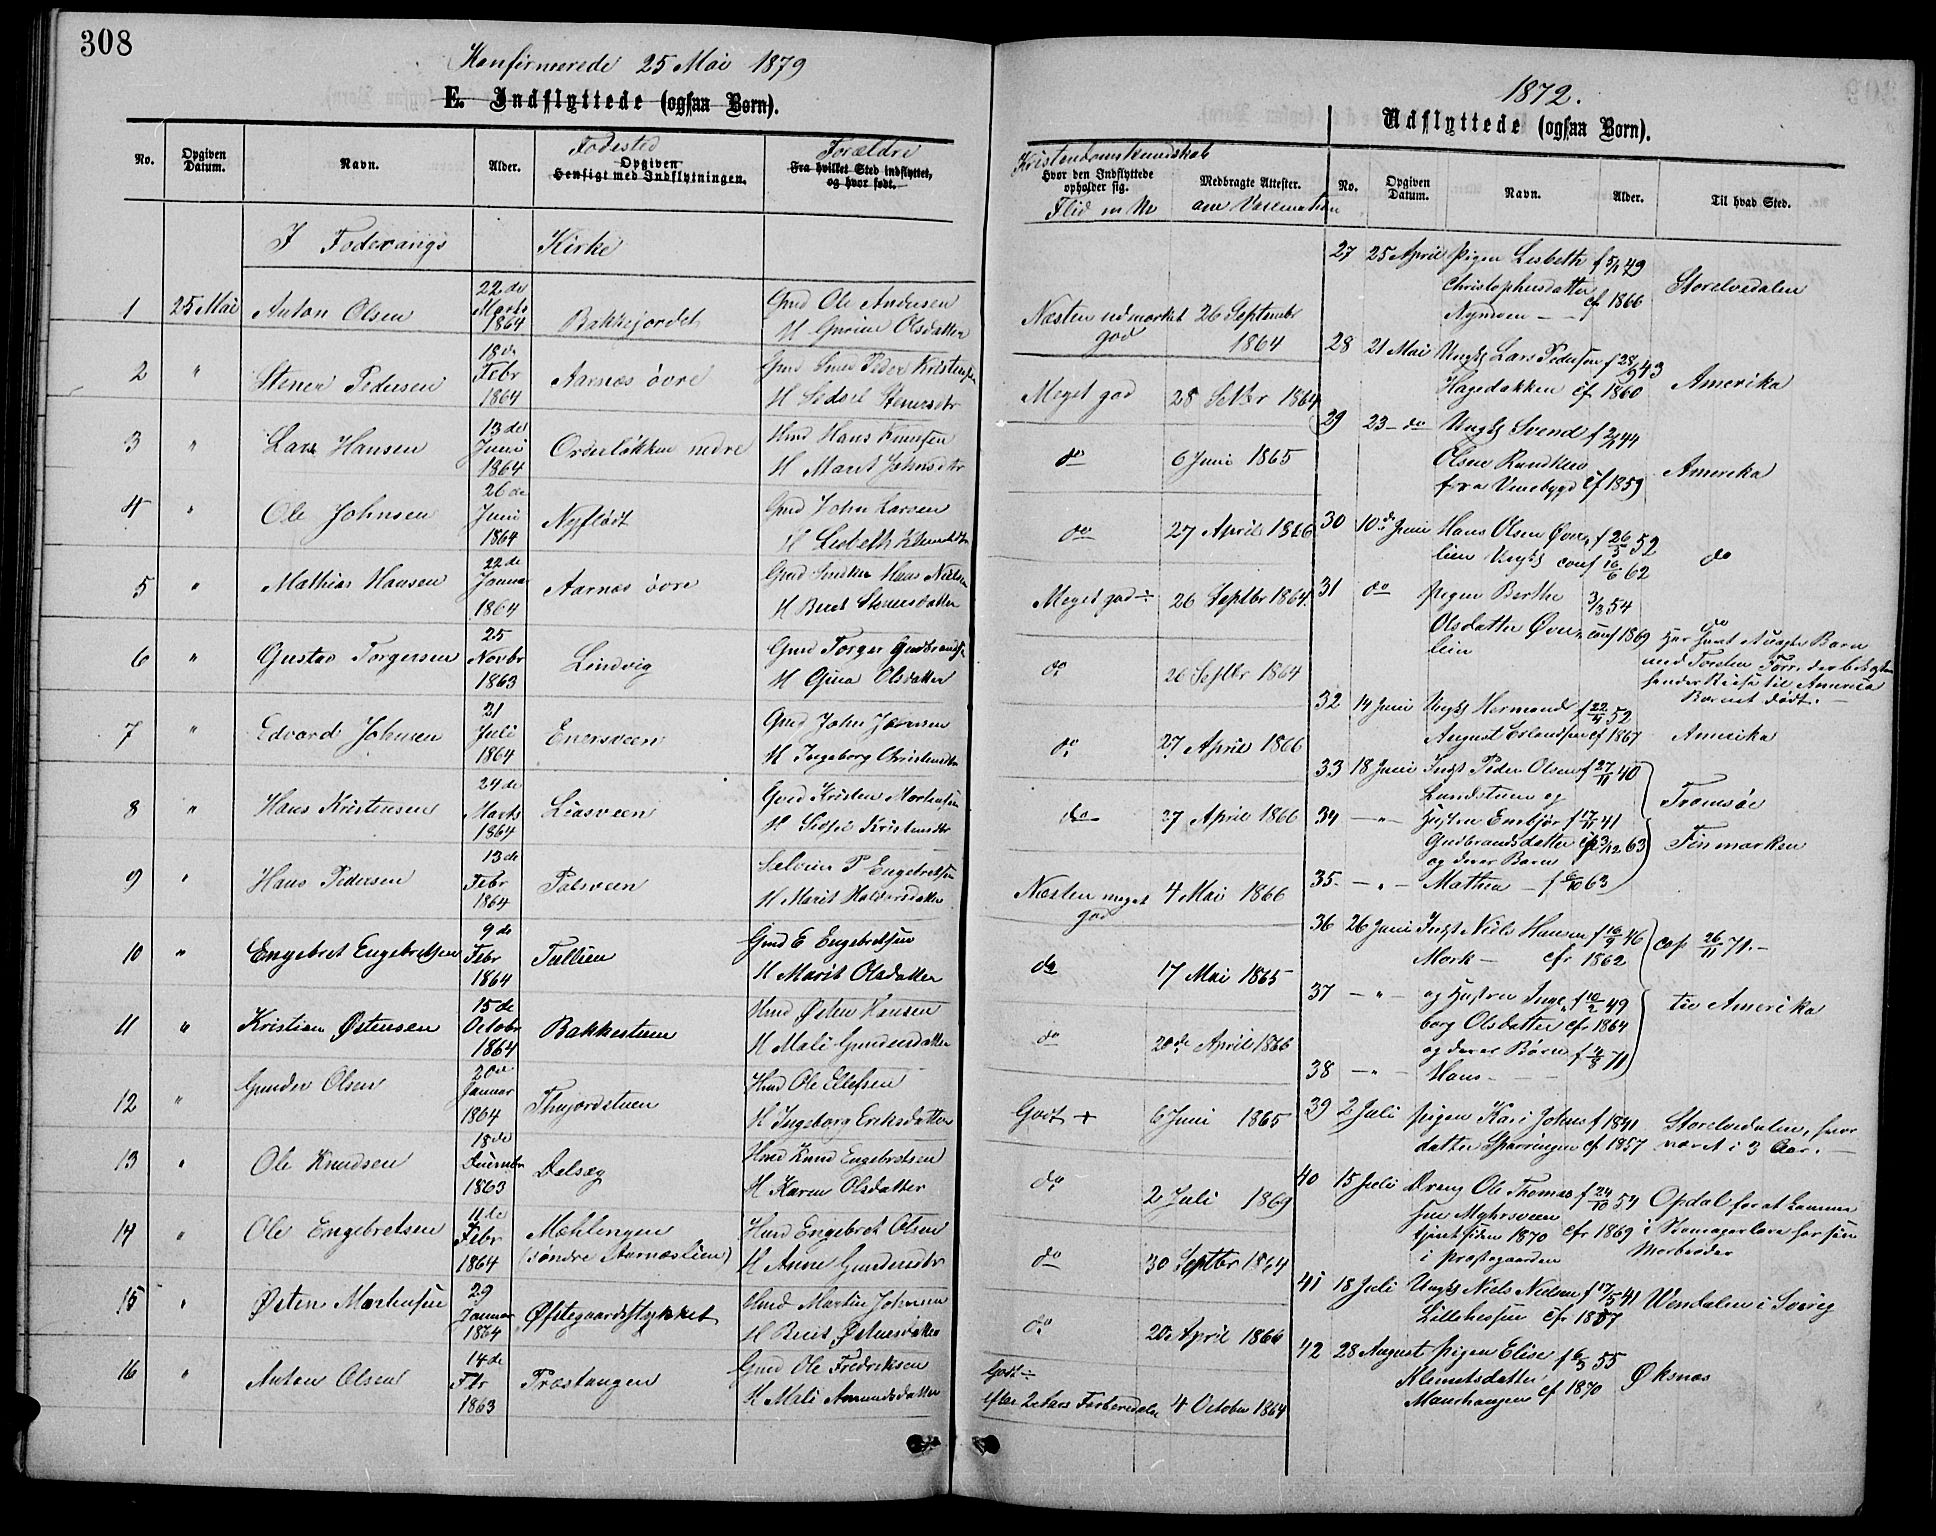 308
Konfirmerede 25 Mai 1879
E. Indflyttede (ogsaa Børn).
No.
Opgiven Datum.
Navn.
Alder.
Fødested
Opgiven
Hensigt med Indflytningen.
Forældre
Fra hvilket Sted indflyttet,
og hvor født.
I Fodevangs Kirke
1 25 Mai Anton Olsen 22de Marts 1864 Bakkejordet Gmd Ole Andersen
H Gurine Olsdatter
2 " Stener Pedersen 18de Febr 1864 Aarnæs øvre Gmd Smed Peder Kristensen
H Sidsel Stenersdtr
3 " Lars Hansen 13de Juni 1864 Orderløkken nedre Hmd Hans Knudsen
H Marit Johnsdtr
4 " Ole Johnsen 26de Juni 1864 Nyflødt Gmd John Larsen
H Lisbeth
5 " Mathias Hansen 22de Januar 1864 Aarnæs øvre Gmd Snekker Hans Nielsen
H Berit Stenersdatter
6 " Gustav Torgersen 25 Novbr 1863 Lindvig Gmd Torger Gudbrands
H Gina Olsdatter
7 " Edvard Johnsen 21 Juli 1864 Enersveen Gmd John
H Ingeborg Christensdtr
8 " Hans Kristensen 24de Marts 1864 Liasveen Gmd Kristen Mortensen
H Sidsel Kristensdtr
9 " Hans Pedersen 13de Febr 1864 Palsveen Selveier P Engebretsen
H Marit Haldorsdatter
10 " Engebret Engebretsen 9de Febr 1864 Tullien Gmd E Engebretsen
H Marit Olsdatter
11 " Kristian Østensen 15de Octobr 1864 Bakkestuen Hmd Østen Hansen
H Mali Gundersdatter
12 " Gunder Olsen 20de Januar 1864 Thujordstuen Hmd Ole Ellefsen
H Ingeborg Eriksdatter
13 " Ole Knudsen 18de Decembr 1863 Dalseg Hmd Knud Engebretsen
H Karen Olsdatter
14 " Ole Engebretsen 11de Febr 1864 Mæhlengen
(søndre Aarnæslien) Hmd Engebret Olsen
H Anne Gundersdtr
15 " Østen Mortensen 29 Januar 1864 Øfstegaardstykket Hmd Martin Johnsen
H Berit Østensdatter
16 " Anton Olsen 14de Fbr 1863 Præstangen Gmd Ole Fredriksen
H Mali Amundsdatter
Kristendomskundskab
Hvor den Indflyttede
opholder sig.
Flid m M
Medbragte Attester.
om Vaccination
Næsten udmærket god 26 Septembr 1864
Meget god 28 Setbr 1864
do 6 Juni 1865
do 27 April 1866
Meget god ÷ 26 Septbr 1864.
do 26 Septbr 1864
do 27 April 1866
do 27 April 1866
Næsten meget god 4 Mai 1866
do 17 Mai 1865
do 20de April 1866
Godt + 6 Juni 1865
do 2 Juli 1869
do 30 Septbr 1864
do 20 April 1866
Godt ÷
efter 2 Aars Forberedelse 4 October 1864
1872.
Udflyttede (ogsaa Børn).
No.
Opgiven Datum.
Navn.
Alder.
Til hvad Sted.
27 25 April Pigen Lisbeth f 5/1 49
Christophersdatter cf 1866 Storelvedalen
Nyveen
28 21 Mai Ungk Lars Pedersen f 28/9 43
Hagedokken cf 1860 Amerika
29 23 do Ungk Svend f 2/1 44
Olsen Rundkleiv
fra Venebygd cf 1859 Amerika
30 10de Juni Hans Olsen Øvre f 26/5 52
lien Ungk conf 16/6 62 do
31 do Pigen Berthe 3/3 54
Olsdatter Øvre conf 1869
lien
do
Har havt Barn
med Torsten der bekoster
hendes Reise til America
Barnet dødt. —
32 14 Juni Ungk Hermand f 22/11 52
August Erlandsen cf 1867 Amerika
33 18 Juni Indst Peder Olsen f 27/11 40
Lundstuen og Tromsøe
34 — " — Hustru Embjør f 17/11 41
Gudbrandsdatter cf 3/12 63 Finmarken
og deres Barn
35. — " — Mathea f 6/10 63
36 26 Juni Indst Niels Hansen f 16/9 46
Mork — cfr 1862 cop 26/11 71. —
37 — " — og Hustru Inge f 10/2 49
borg Olsdatter cfr 1864 til Amerika
og deres Børn f 2/8 71
38 — " — Hans
39 2 Juli Pigen Kari Johns f 1841
datter Sparringen cf 1857 Storelvedalen, hvor
været i 3 Aar. —
40 15 Juli Dreng Ole Thomas f 24/10 54
sen Myhrsveen
tjent siden 1870 cfr 1869
i Præstegaarden
Opdal for at komme
i Skomagerlære hos sin
Morbroder
41 18 Juli Ungk Niels Nielsen f 17/5 41
Lillehessen cfr 1857 i Sverig
42 28 August Pigen Elise f 6/5 55
Klemetsdatter
Maurhaugen cf 1870 Øksnæs